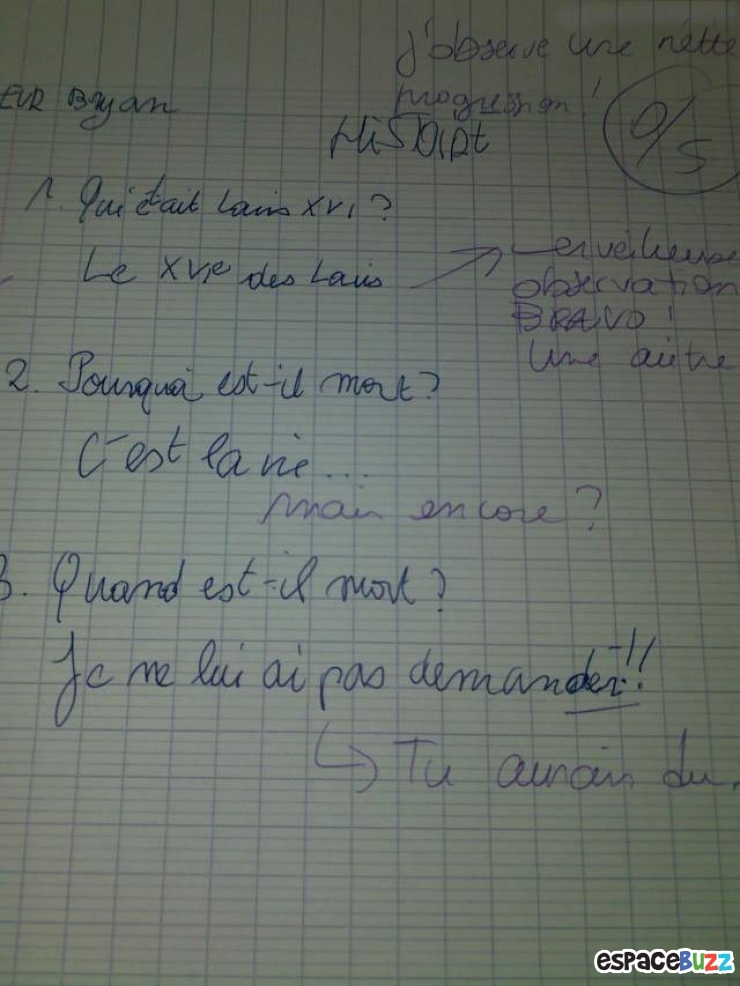 j'observe une nette
progression !
EUR Bryan
HiSTOiRE
0/5
1. Qui était Louis XVI ?
Le XVIe des Louis
erveilleuse
observation
BRAVO !
Une autre
2. Pourquoi est-il mort ?
C'est la vie...
mais encore ?
3. Quand est-il mort ?
Je ne lui ai pas demander !!
Tu aurais du.
espaceBuzz